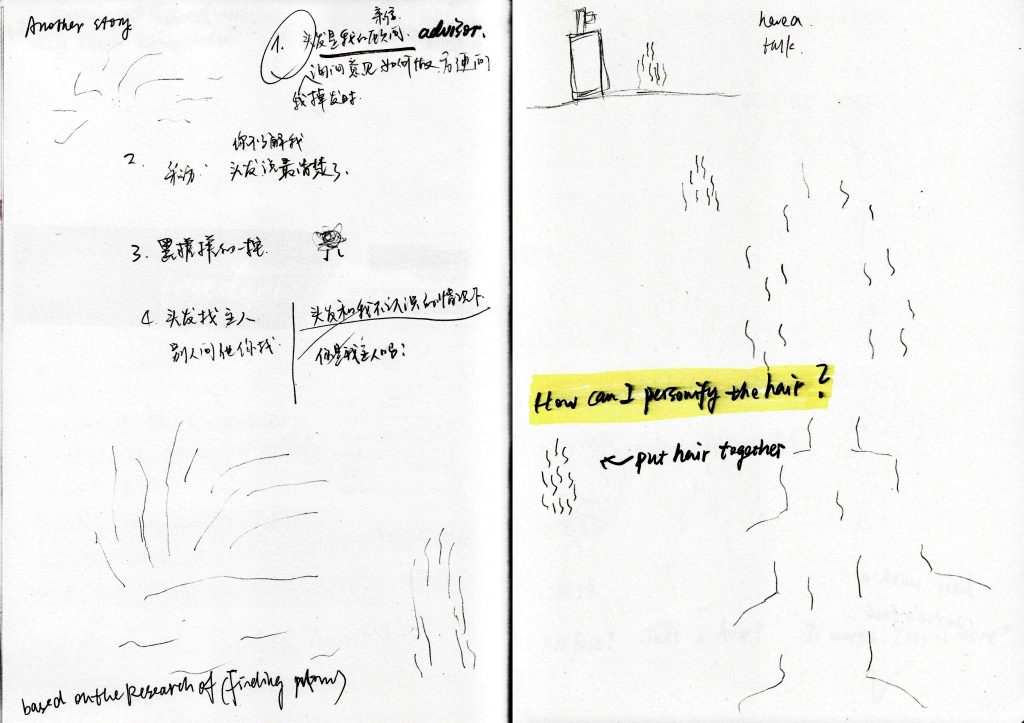 Another story
亲信
1. 头发是我的顾问. advisor.
询问意见 如何做 方便问
我掉发时.
你不了解我
2. 头发说最清楚了.
3. 黑撲撲的一坨.
4. 头发找主人
别人问他你找
头发和我不认识的情况下
你是我主人吗?
based on the research of (finding
have a
talk.
How can I personify the hair?
put hair together